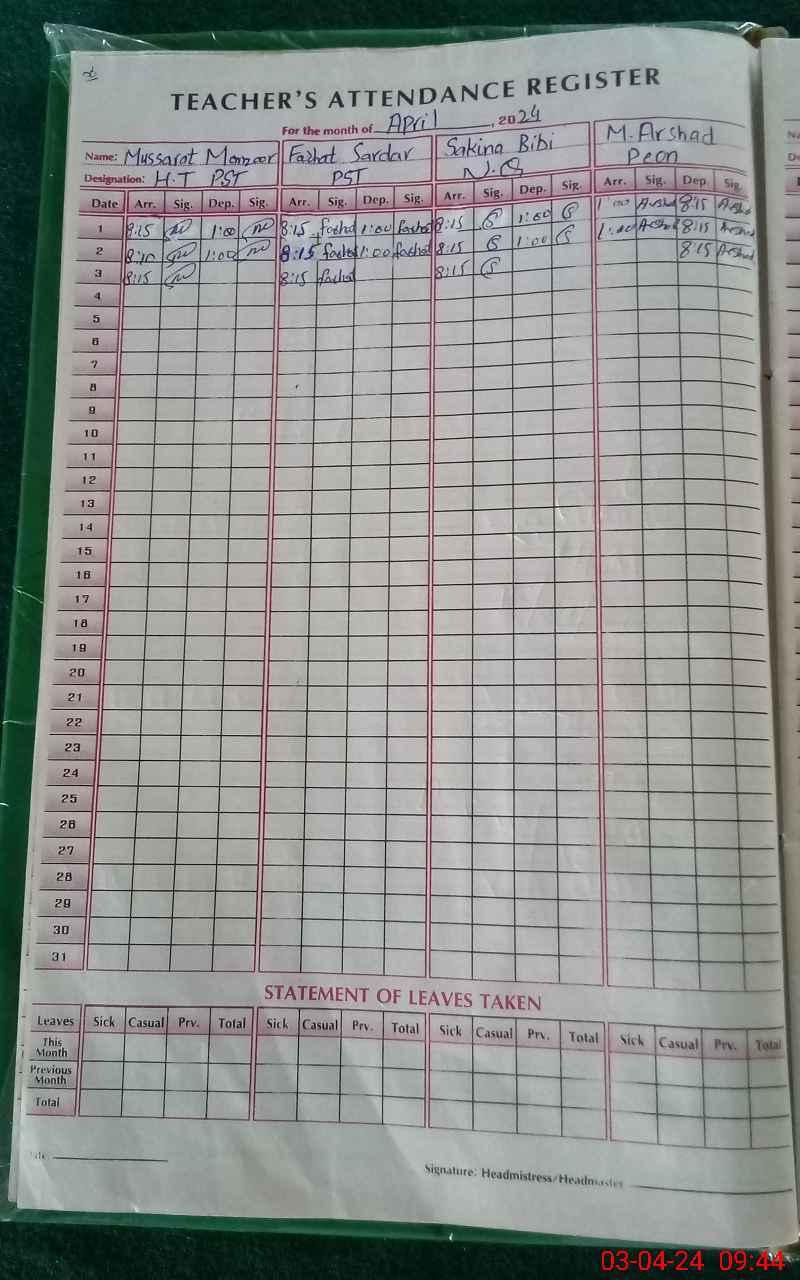 TEACHER'S ATTENDANCE REGISTER
For the month of April, 2024
Name: Mussarat Manzoor Farhat Sardar Sakina Bibi M. Arshad
Designation: H.T PST PST N.Q Peon
Date Arr. Sig. Dep. Sig. Arr. Sig. Dep. Sig. Arr. Sig. Dep. Sig. Arr. Sig. Dep. Sig.
1 8:15 1:00 8:15 Farhat 1:00 Farhat 8:15 1:00 1:00 Arshad 8:15 Arshad
2 8:10 1:00 8:15 Farhat 1:00 Farhat 8:15 1:00 1:00 Arshad 8:15 Arshad
3 8:15 8:15 Farhat 8:15 8:15 Arshad
4
5
6
7
8
9
10
11
12
13
14
15
16
17
18
19
20
21
22
23
24
25
26
27
28
29
30
31
STATEMENT OF LEAVES TAKEN
Leaves Sick Casual Prv. Total Sick Casual Prv. Total Sick Casual Prv. Total Sick Casual Prv. Total
This
Month
Previous
Month
Total
Signature: Headmistress/Headmaster
03-04-24 09:44